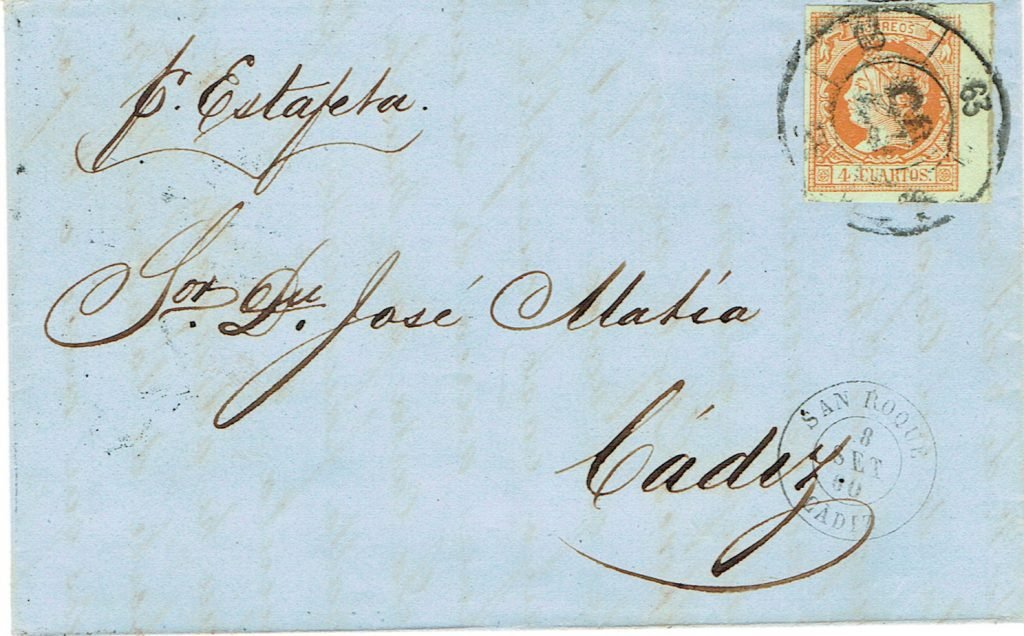 p. Estafeta.
CORREOS
63
4 CUARTOS.
Sor. Dn. José Matía
Cádiz.
SAN ROQUE
8
SET
60
CADIZ